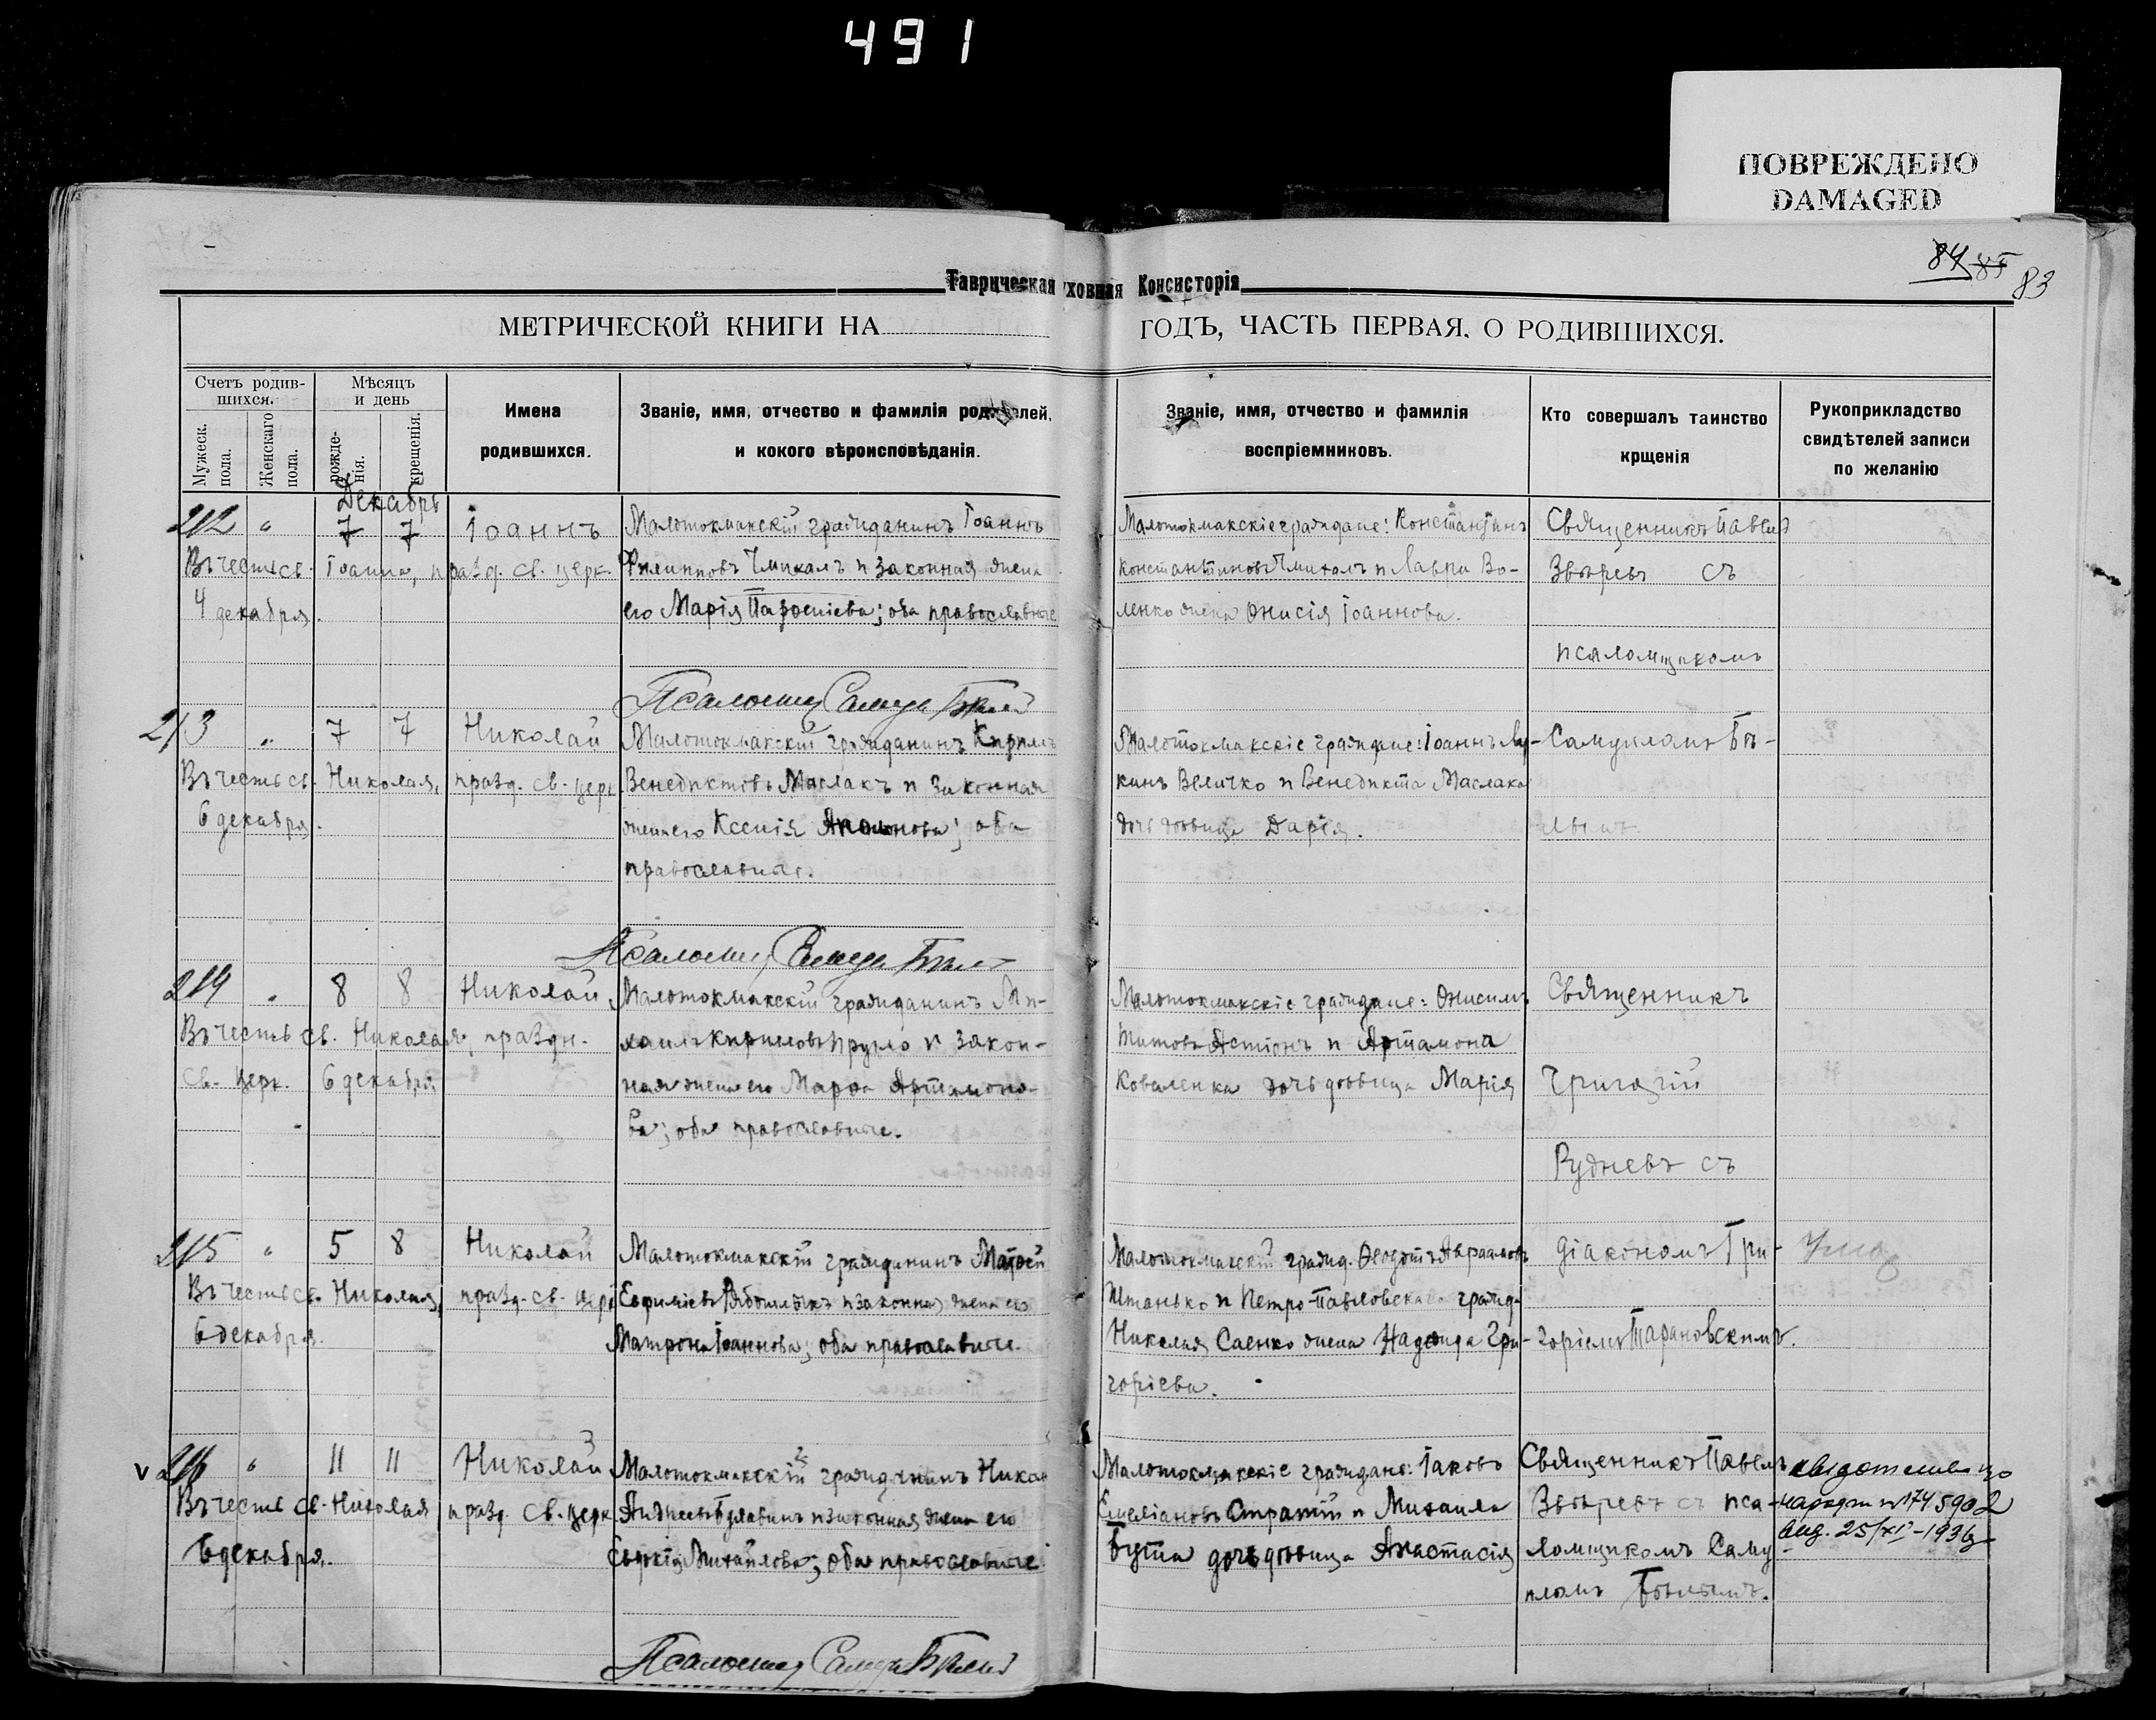 491
ПОВРЕЖДЕНО
DAMAGED
84 85 83
Таврическая уховная Консисторія
МЕТРИЧЕСКОЙ КНИГИ НА ГОДЪ, ЧАСТЬ ПЕРВАЯ, О РОДИВШИХСЯ.
Счетъ родив-
шихся.
Мужеск.
пола.
Женскаго
пола.
Мѣсяцъ
и день
рожде-
нія.
крещенія.
Имена
родившихся.
Званіе, имя, отчество и фамилія родителей,
и кокого вѣроисповѣданія.
Званіе, имя, отчество и фамилія
воспріемниковъ.
Кто совершалъ таинство
крщенія
Рукоприкладство
свидѣтелей записи
по желанію
Декабрь
212 " 7 7 Іоаннъ
Въ честь св. Іоанна, празд. св. церк.
4 декабря.
Малотокмакскій гражданинъ Іоаннъ
Филипповъ Чмихалъ и законная жена
его Марія; оба православные
Малотокмакскіе граждане: Константинъ
Константиновъ Чмихалъ и Лавра Во-
ленко жена Онисія Іоаннова.
Священникъ Павелъ
Звѣревъ съ
псаломщикомъ
213 " 7 7 Николай
Въ честь св. Николая, празд. св. церк
6 декабря.
Малотокмакскій гражданинъ Кириллъ
Венедиктовъ Маслакъ и законная
жена его Ксенія; оба
православные.
Малотокмакскіе граждане: Іоаннъ Лу-
кинъ Величко и Венедикта Маслака
дочь дѣвица Дарія.
Самуиломъ Бѣ-
лымъ.
214 " 8 8 Николай
Въ честь св. Николая, праздн.
св. церк. 6 декабря
Малотокмакскій гражданинъ Ми-
хаилъ Кириловъ и закон-
ная жена его Марѳа Артамоно-
ва; оба православные.
Малотокмакскіе граждане: Онисимъ
Титовъ и Артамона
Коваленка дочь дѣвица Марія
Священникъ
Григорій
Рудневъ съ
215 " 5 8 Николай
Въ честь св. Николая, празд. св. церк
6 декабря.
Малотокмакскій гражданинъ Матѳей
Евфиміевъ и законная жена его
Матрона Іоаннова; оба православные.
Малотокмакскій гражд. Ѳеодотъ Авраамовъ
Штанько и Петро-Павловскаго гражд.
Николая Саенко жена Надежда Гри-
горіева.
діакономъ Гри-
горіемъ Тарановскимъ.
216 " 11 11 Николай
Въ честь св. Николая празд. св. церк
6 декабря.
Малотокмакскій гражданинъ
и законная жена его
Михайлова; оба православные
Малотокмакскіе граждане: Іаковъ
Емеліановъ и Михаила
Бута дочь дѣвица Анастасія
Священникъ Павелъ
Звѣревъ съ пса-
ломщикомъ Саму
иломъ Бѣлымъ.
25/XI-1936